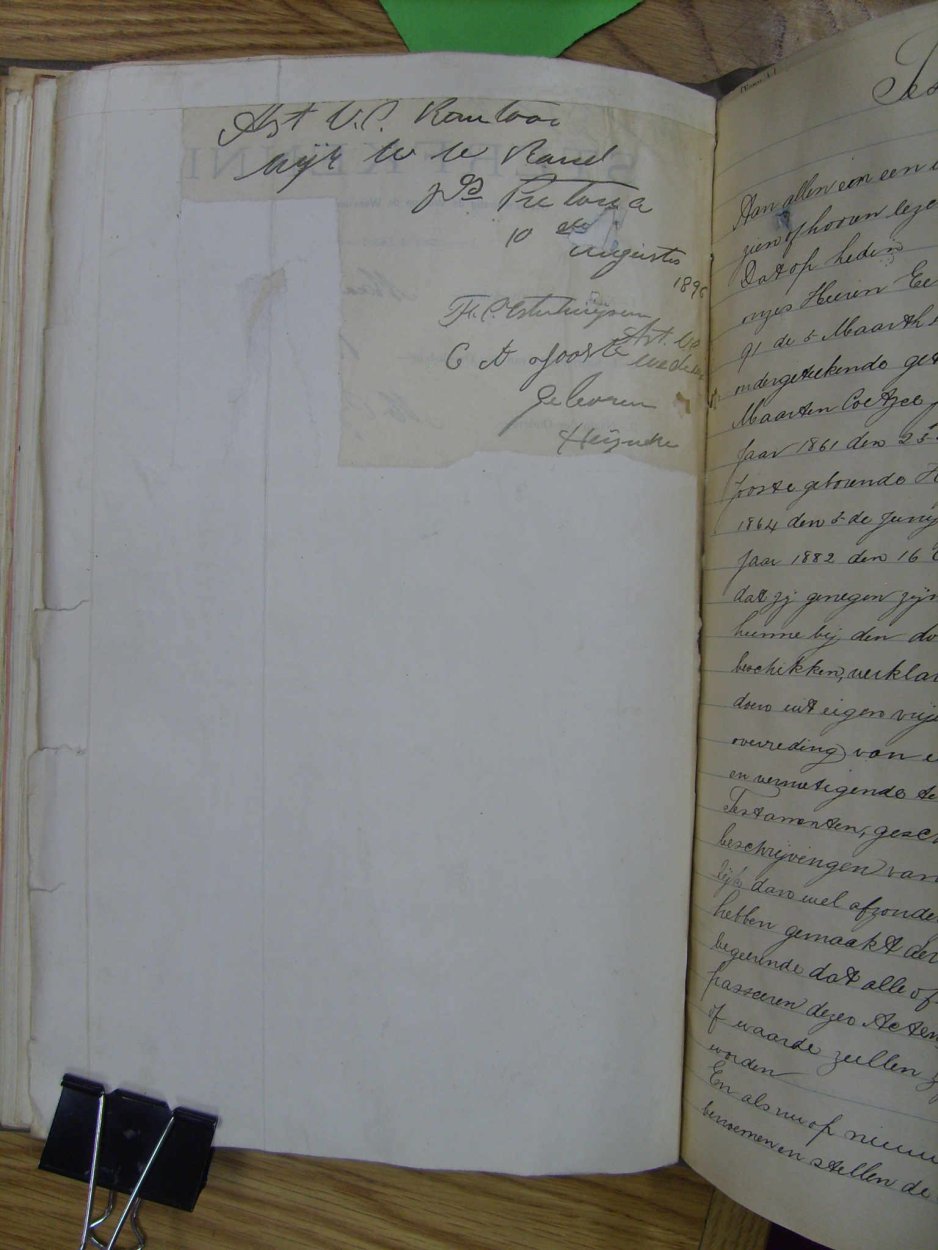 Ast V.C. Kantoor
wijk W W Rand
Pretoria
10 de Augustus
189
F.C. Esterhuijsen
geboren
Tes
Aan allen een een i
zien of hooren leze
Dat op heden
onzes Heeren Ee
91 de 5 Maart
ondergeteekende get
Maarten Coetzee
Jaar 1861 den 25
Joste geborende H
1864 den 5 de Junij
Jaar 1882 den 16
dat zij genegen zijn
hunne bij den do
beschikken, verklar
doen uit eigen vrije
overreding van e
en vernietigende
Testamenten, gesch
beschrijvingen van
lijk dan wel afzonde
hebben gemaakt der
begeerende dat alle of
passeeren dezes Acten
of waarde zullen z
worden
En als nu op nieuw
benoemen en stellen de